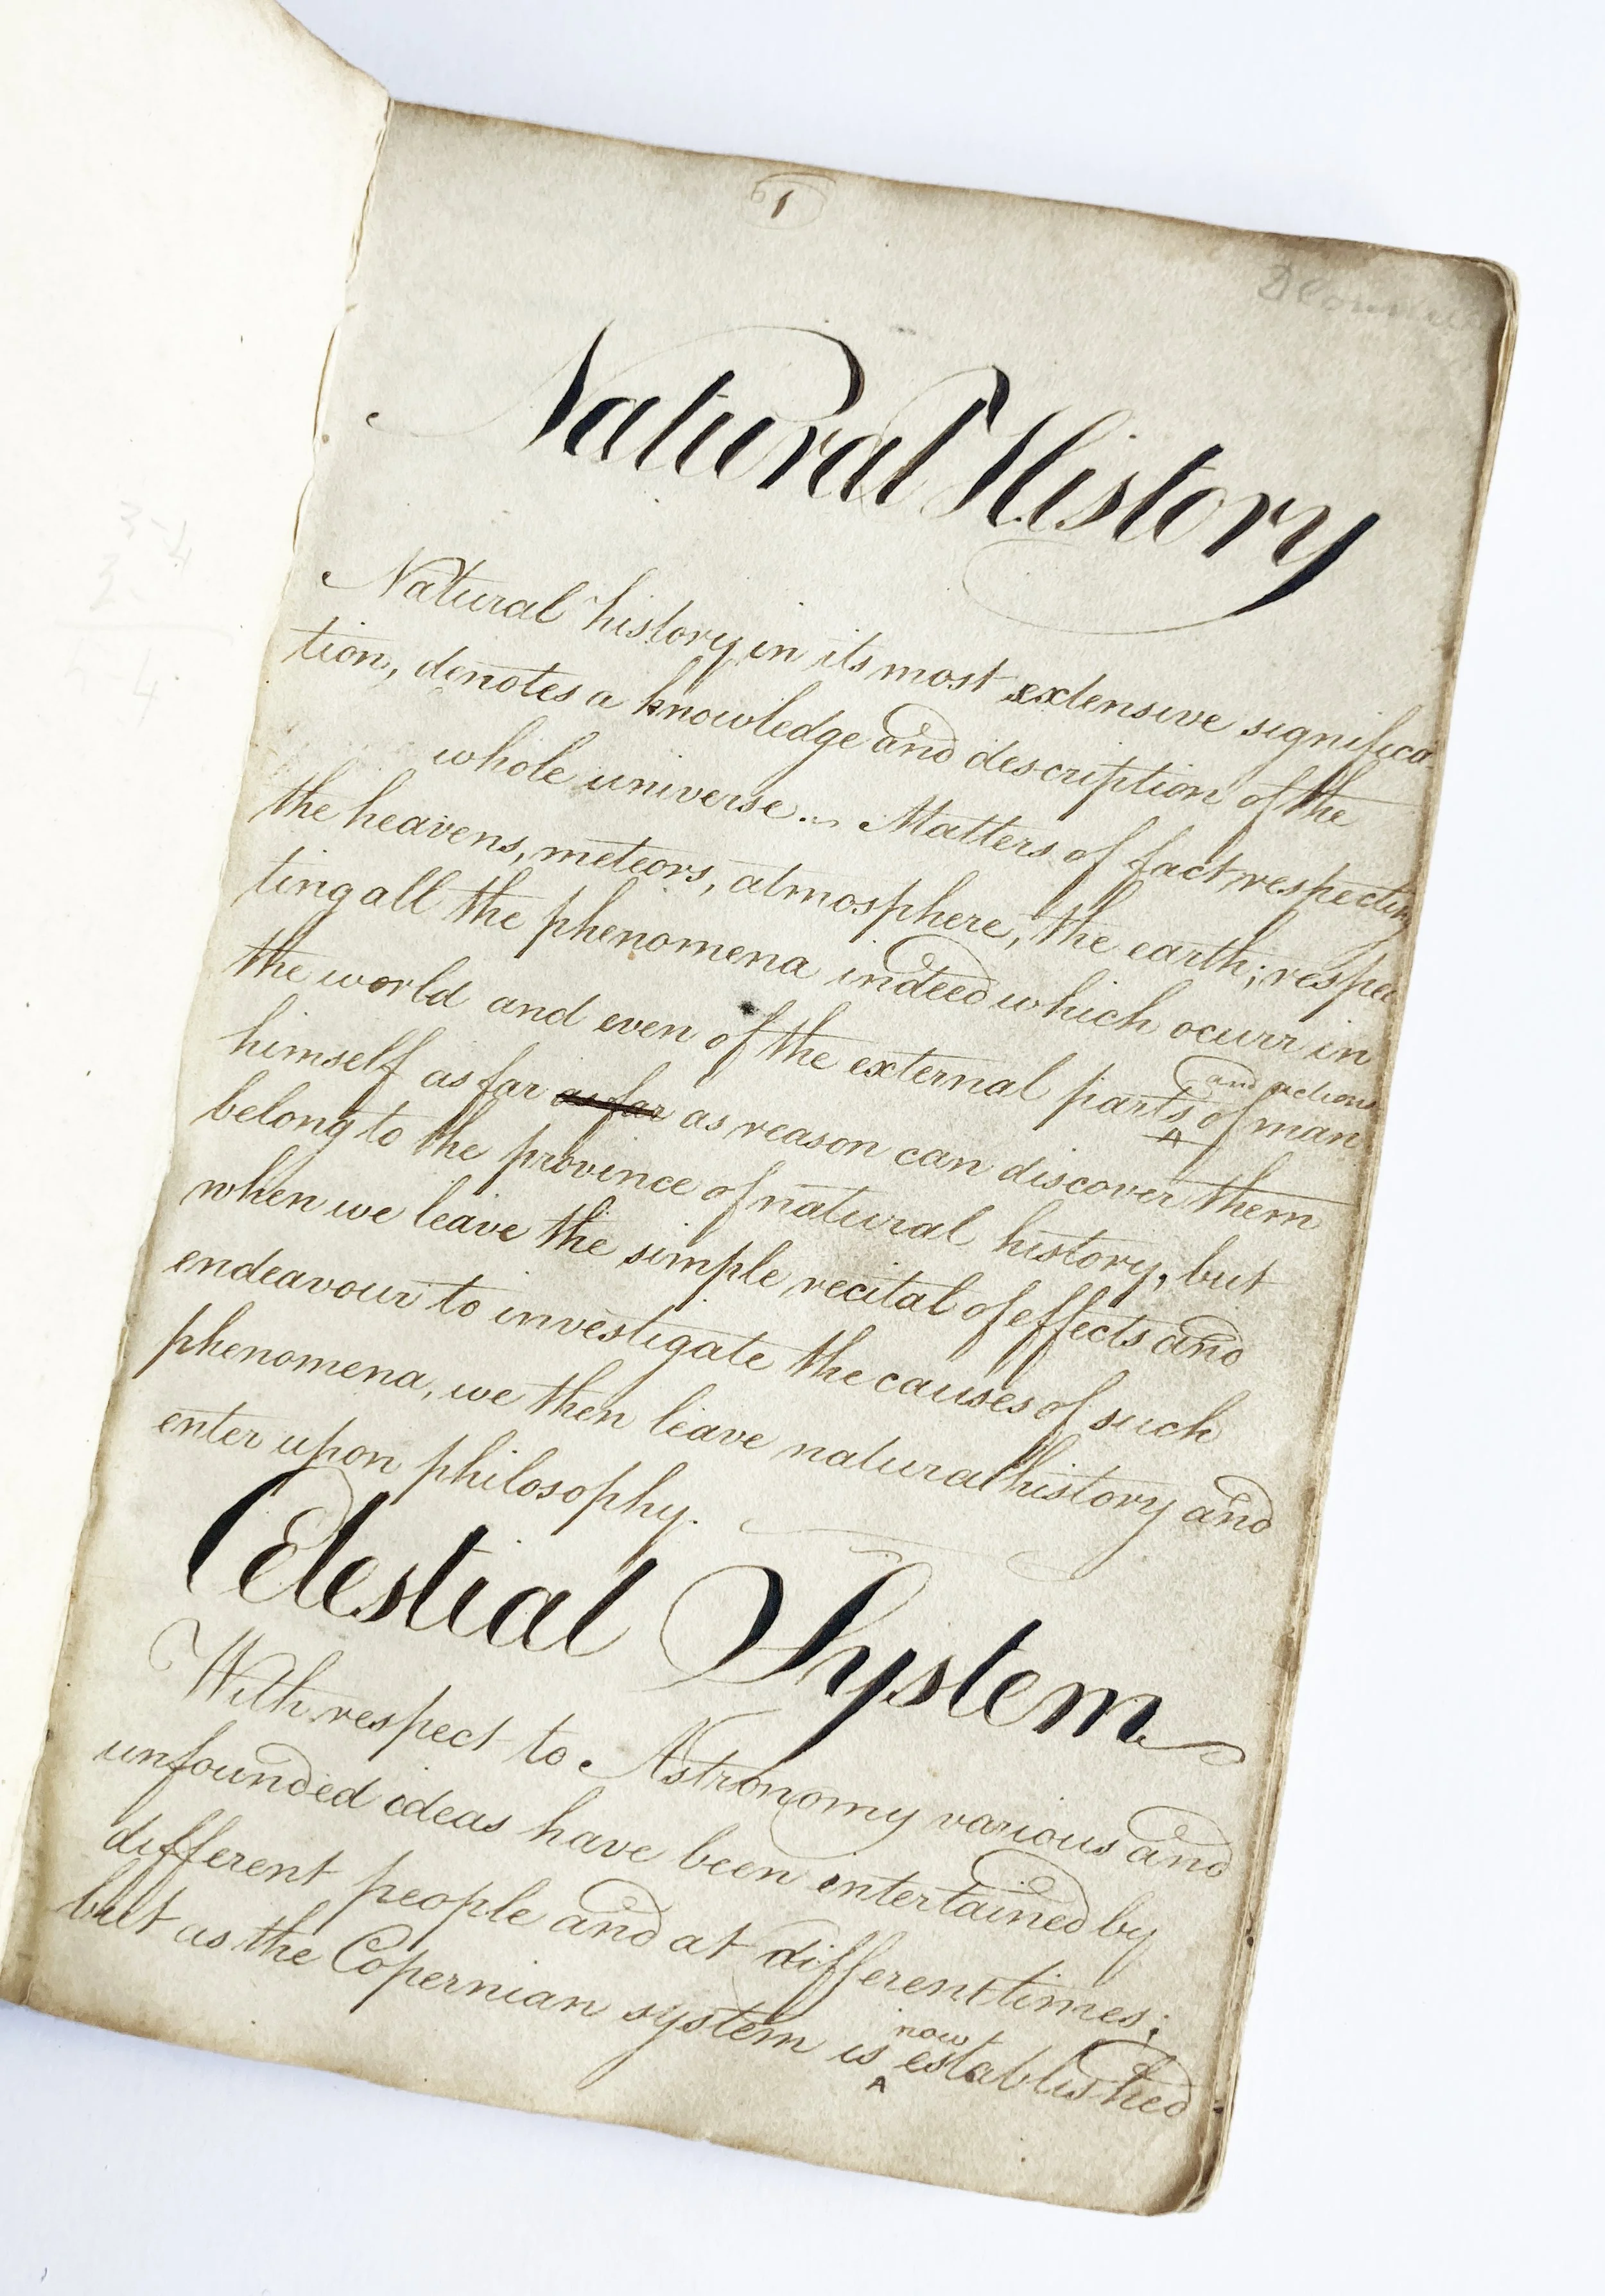 1
Natural History
Natural history in its most extensive significa-
tion, denotes a knowledge and description of the
whole universe. Matters of fact respecting
the heavens, meteors, atmosphere, the earth; respec
ting all the phenomena indeed which ocurr in
the world and even of the external parts and actions of man
himself as far as far as reason can discover them
belong to the province of natural history, but
when we leave the simple recital of effects and
endeavour to investigate the causes of such
phenomena, we then leave natural history and
enter upon philosophy.
Celestial System
With respect to Astronomy various and
unfounded ideas have been intertained by
different people and at different times;
but as the Copernian system is now established